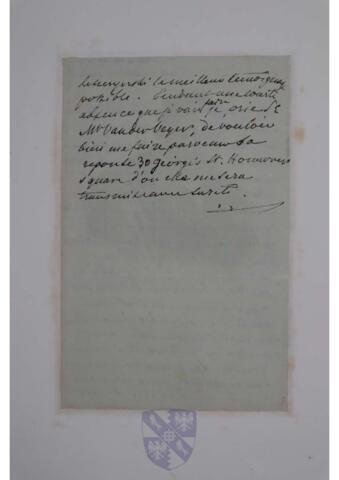 le meilleur temoignage
possible. Pendant une courte
absence que je vais faire je prie S E
Mr Van der Weyer, de vouloir
bien me faire parvenir sa
reponse 30 George's St. Hannovers
Square d'ou elle me sera
transmise avec sureté.